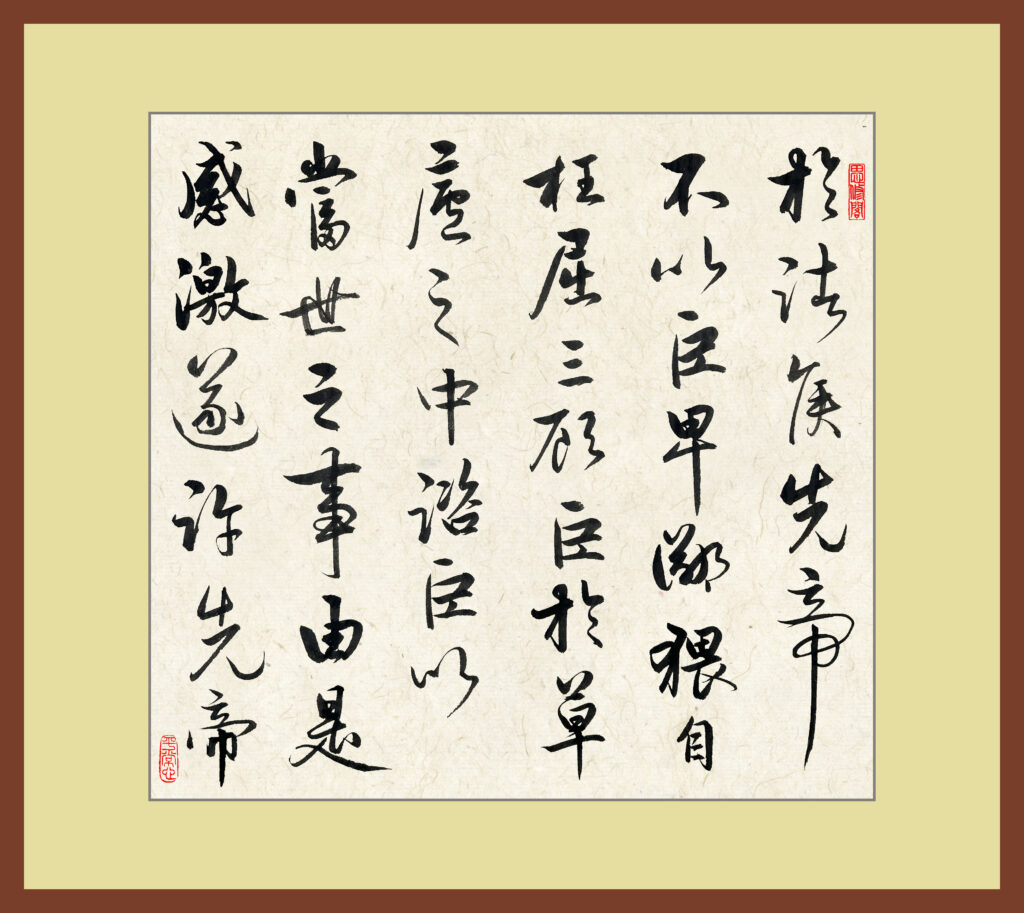 思修閣
於諸侯先帝
不以臣卑鄙猥自
枉屈三顧臣於草
廬之中諮臣以
當世之事由是
感激遂許先帝
平常心